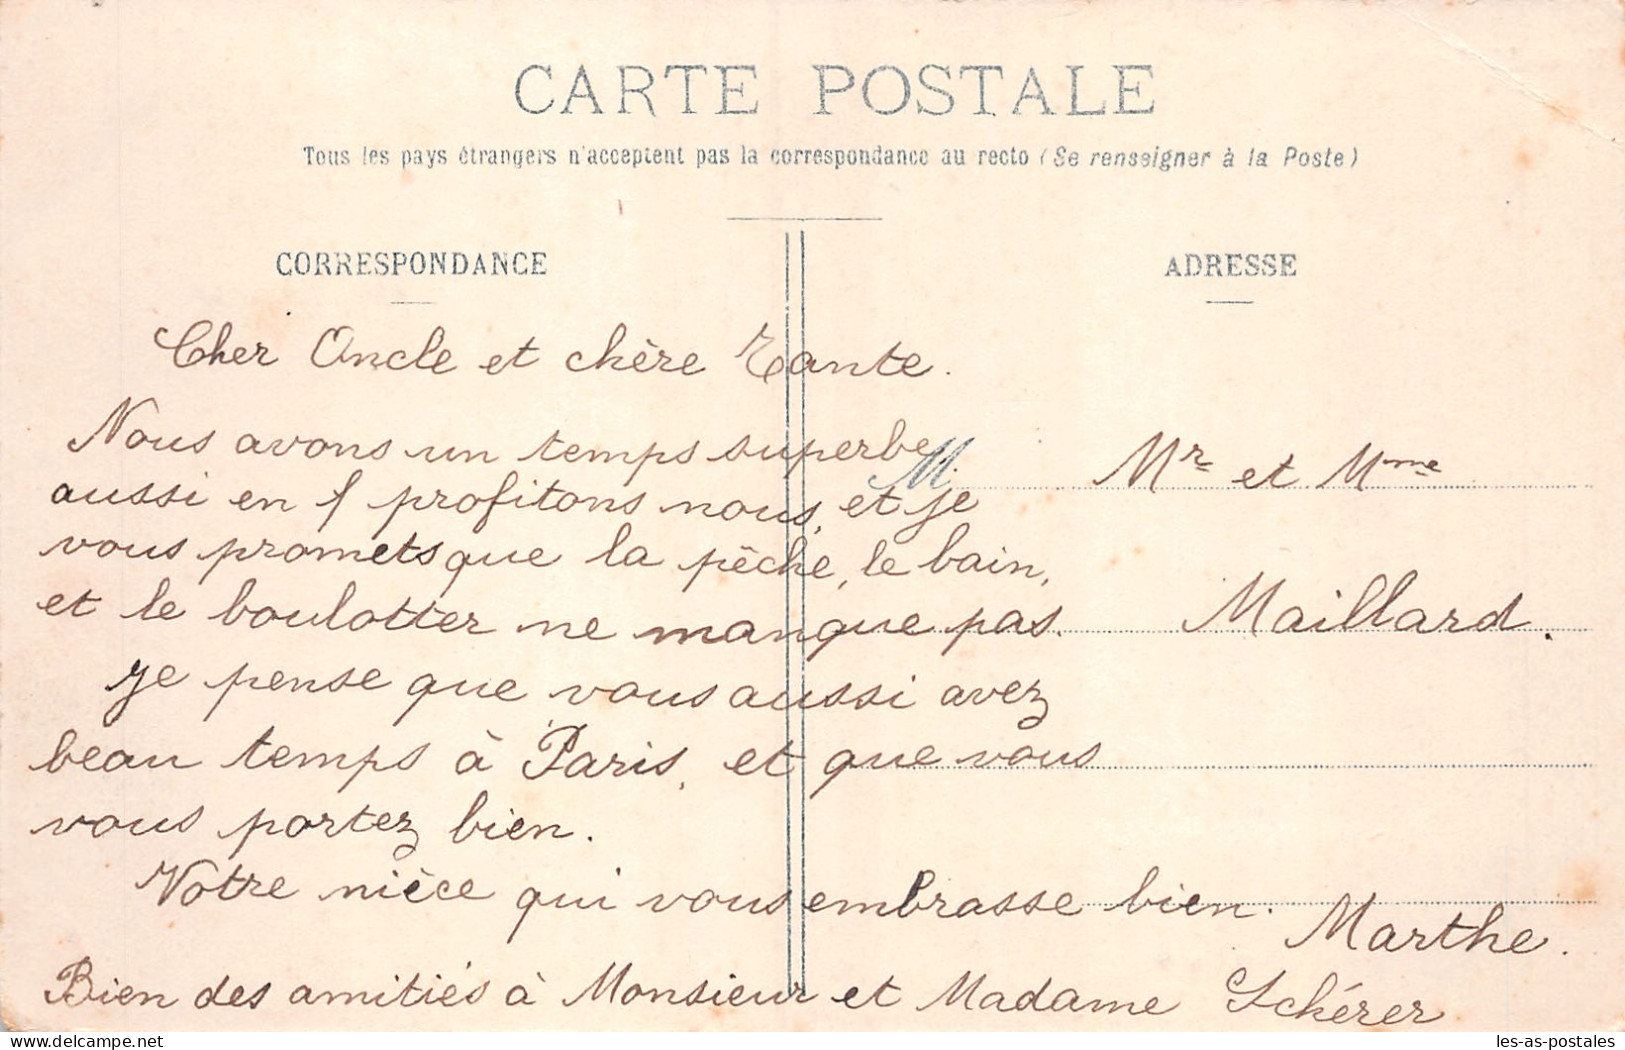 CARTE POSTALE
Tous les pays étrangers n'acceptent pas la correspondance au recto (Se renseigner à la Poste)
CORRESPONDANCE
ADRESSE
Cher Oncle et chère Tante.
Nous avons un temps superbe
aussi en profitons nous, et je
vous promets que la pêche, le bain,
et le boulotter ne manque pas.
Je pense que vous aussi avez
beau temps à Paris, et que vous
vous portez bien.
Votre nièce qui vous embrasse bien.
Marthe.
Bien des amitiés à Monsieur et Madame Schérer
M.
Mr et Mme
Maillard.
delcampe.net
les-as-postales